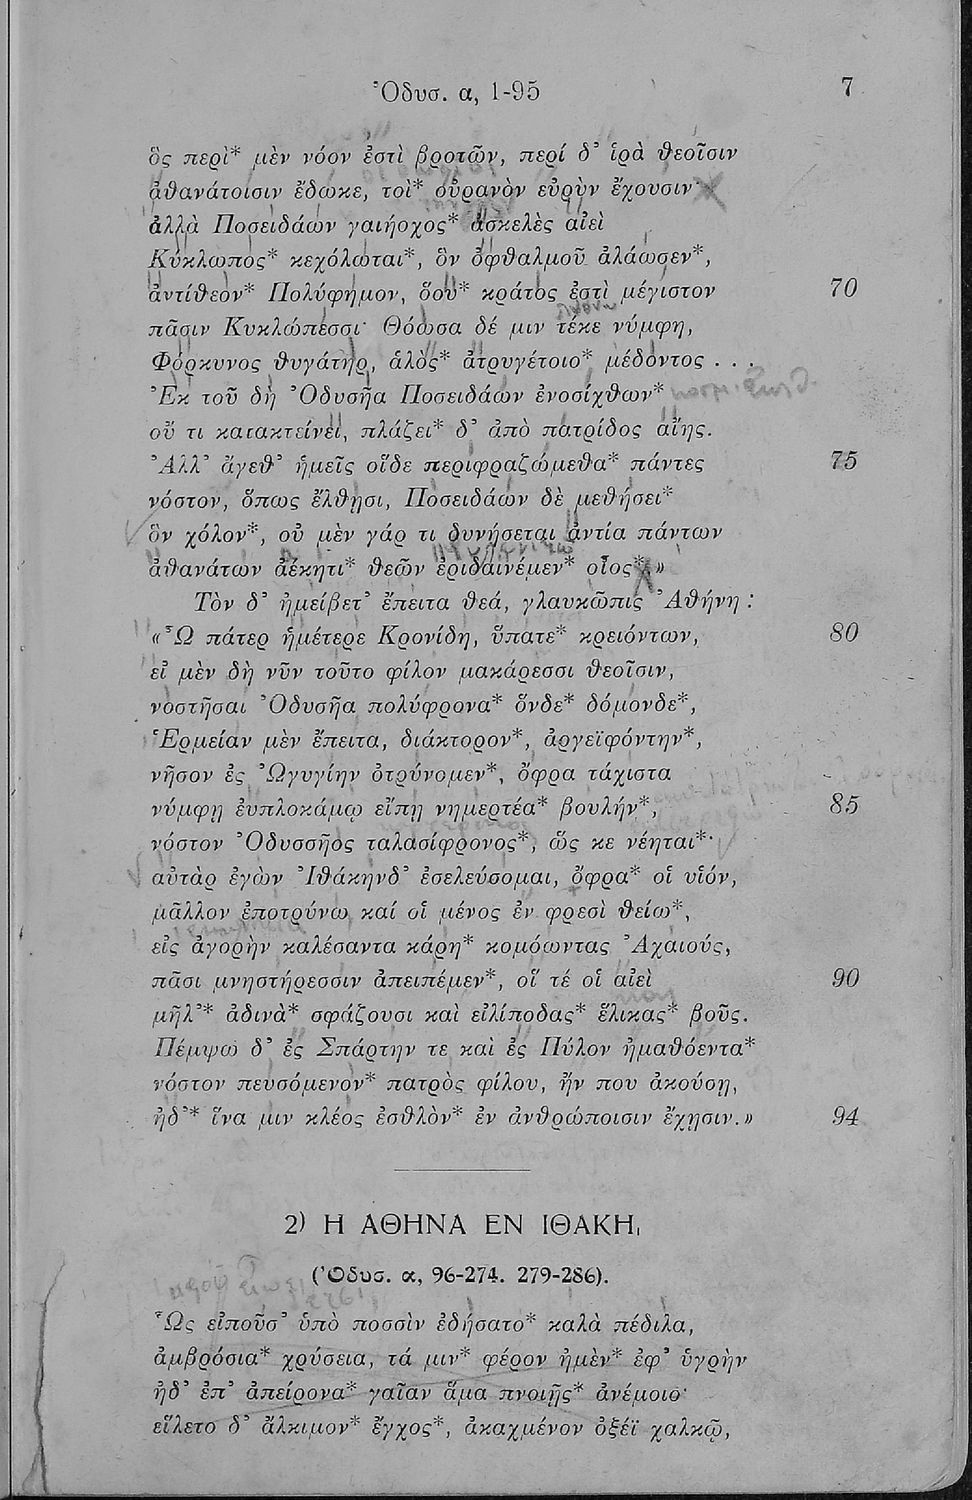 Ὀδυσ. α, 1-95
7
ὃς περὶ* μὲν νόον ἐστὶ βροτῶν, περί δ᾽ ἱρὰ θεοῖσιν
ἀθανάτοισιν ἔδωκε, τοὶ* οὐρανὸν εὐρὺν ἔχουσιν
ἀλλὰ Ποσειδάων γαιήοχος* ἀσκελὲς αἰεὶ
Κύκλωπος* κεχόλωται*, ὃν ὀφθαλμοῦ ἀλάωσεν*,
ἀντίθεον* Πολύφημον, ὅου* κράτος ἐστὶ μέγιστον 70
πᾶσιν Κυκλώπεσσι· Θόωσα δέ μιν τέκε νύμφη,
Φόρκυνος θυγάτηρ, ἁλὸς* ἀτρυγέτοιο* μέδοντος . . .
Ἐκ τοῦ δὴ Ὀδυσῆα Ποσειδάων ἐνοσίχθων*
οὔ τι κατακτείνει, πλάζει* δ᾽ ἀπὸ πατρίδος αἴης.
Ἀλλ᾽ ἄγεθ᾽ ἡμεῖς οἵδε περιφραζώμεθα* πάντες 75
νόστον, ὅπως ἔλθῃσι, Ποσειδάων δὲ μεθήσει*
ὃν χόλον*, οὐ μὲν γάρ τι δυνήσεται ἀντία πάντων
ἀθανάτων ἀέκητι* θεῶν ἐριδαινέμεν* οἶος*.»
Τὸν δ᾽ ἠμείβετ᾽ ἔπειτα θεά, γλαυκῶπις Ἀθήνη :
«Ὦ πάτερ ἡμέτερε Κρονίδη, ὕπατε* κρειόντων, 80
εἰ μὲν δὴ νῦν τοῦτο φίλον μακάρεσσι θεοῖσιν,
νοστῆσαι Ὀδυσῆα πολύφρονα* ὅνδε* δόμονδε*,
Ἑρμείαν μὲν ἔπειτα, διάκτορον*, ἀργεϊφόντην*,
νῆσον ἐς Ὠγυγίην ὀτρύνομεν*, ὄφρα τάχιστα
νύμφῃ ἐυπλοκάμῳ εἴπῃ νημερτέα* βουλήν*, 85
νόστον Ὀδυσσῆος ταλασίφρονος*, ὥς κε νέηται*·
αὐτὰρ ἐγὼν Ἰθάκηνδ᾽ ἐσελεύσομαι, ὄφρα* οἱ υἱόν,
μᾶλλον ἐποτρύνω καί οἱ μένος ἐν φρεσὶ θείω*,
εἰς ἀγορὴν καλέσαντα κάρη* κομόωντας Ἀχαιούς,
πᾶσι μνηστήρεσσιν ἀπειπέμεν*, οἵ τέ οἱ αἰεὶ 90
μῆλ᾽* ἁδινὰ* σφάζουσι καὶ εἰλίποδας* ἕλικας* βοῦς.
Πέμψω δ᾽ ἐς Σπάρτην τε καὶ ἐς Πύλον ἠμαθόεντα*
νόστον πευσόμενον* πατρὸς φίλου, ἤν που ἀκούσῃ,
ἠδ᾽* ἵνα μιν κλέος ἐσθλὸν* ἐν ἀνθρώποισιν ἔχῃσιν.» 94
2) Η ΑΘΗΝΑ ΕΝ ΙΘΑΚΗ,
(Ὀδυσ. α, 96-274. 279-286).
Ὣς εἰποῦσ᾽ ὑπὸ ποσσὶν ἐδήσατο* καλὰ πέδιλα,
ἀμβρόσια* χρύσεια, τά μιν* φέρον ἠμὲν* ἐφ᾽ ὑγρὴν
ἠδ᾽ ἐπ᾽ ἀπείρονα* γαῖαν ἅμα πνοιῇς* ἀνέμοιο·
εἵλετο δ᾽ ἄλκιμον* ἔγχος*, ἀκαχμένον ὀξέϊ χαλκῷ,